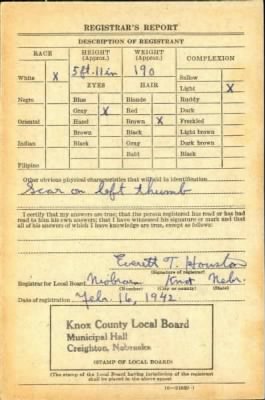 REGISTRAR'S REPORT
DESCRIPTION OF REGISTRANT
RACE HEIGHT (Approx.) WEIGHT (Approx.) COMPLEXION
5 ft. 11 in 190
White X EYES HAIR Sallow
Light X
Negro Blue Blonde Ruddy
Gray X Red Dark
Oriental Hazel Brown X Freckled
Brown Black Light brown
Indian Black Gray Dark brown
Bald Black
Filipino
Other obvious physical characteristics that will aid in identification
Scar on left thumb
I certify that my answers are true; that the person registered has read or has had
read to him his own answers; that I have witnessed his signature or mark and that
all of his answers of which I have knowledge are true, except as follows:
Everett T. Houston
(Signature of registrar)
Registrar for Local Board Niobrara Knox Nebr.
(Number) (City or county) (State)
Date of registration Febr. 16, 1942
Knox County Local Board
Municipal Hall
Creighton, Nebraska
(STAMP OF LOCAL BOARD)
(The stamp of the Local Board having jurisdiction of the registrant
shall be placed in the above space)